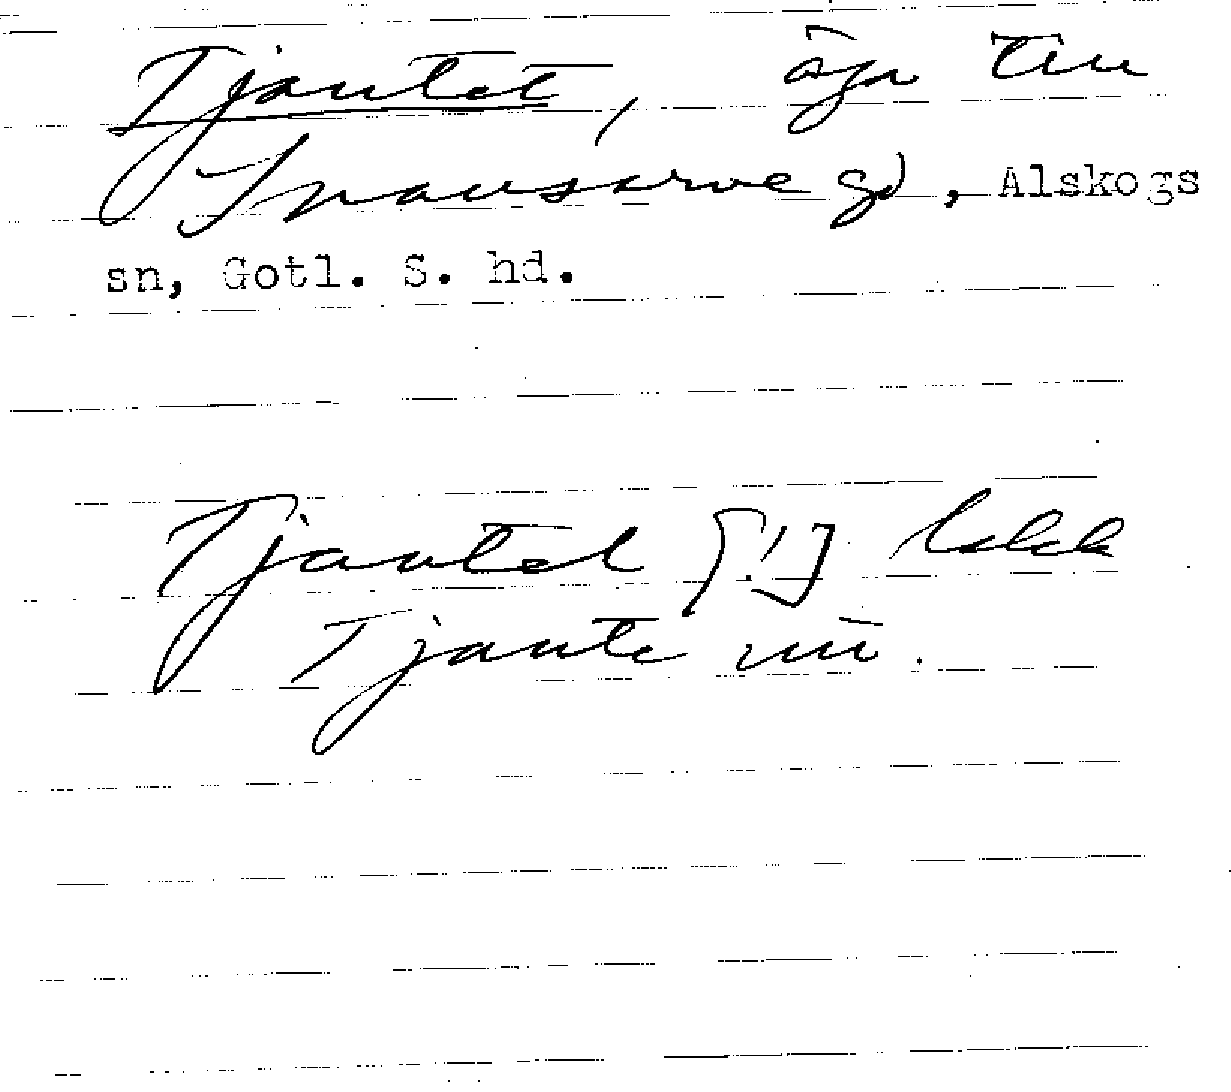 Tjautet, äga till
Snausarve gd, Alskogs
sn, Gotl. S. hd.
Tjautel [!]
Tjaute